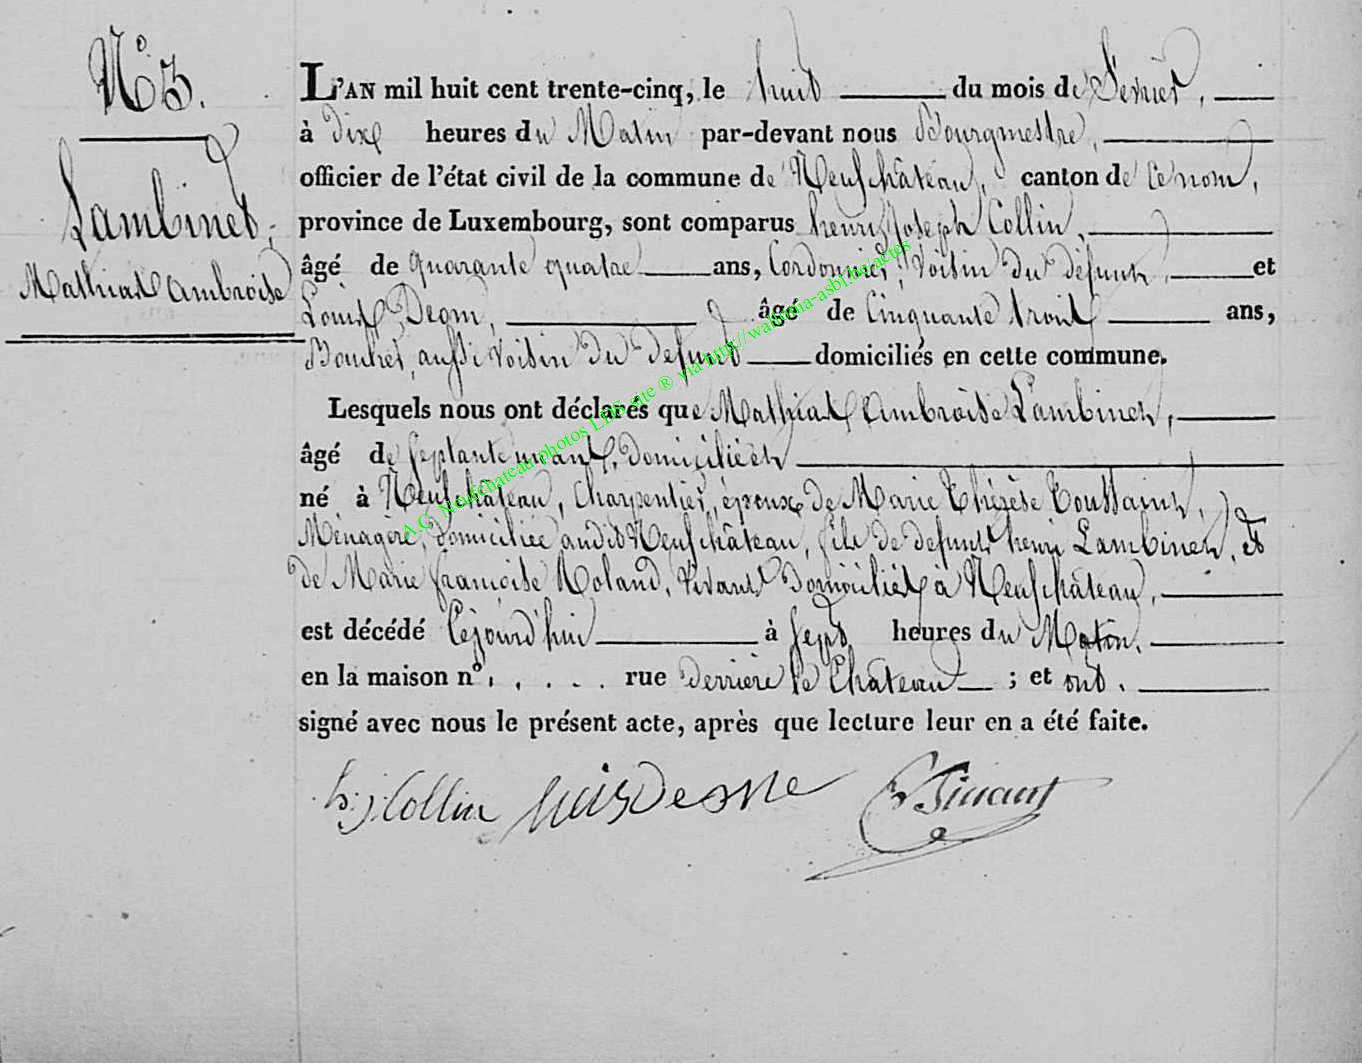 N° 3.
Lambinet,
Mathias Ambroise
L'AN mil huit cent trente-cinq, le huit du mois de Février,
à dix heures du Matin par-devant nous Bourgmestre,
officier de l'état civil de la commune de Neufchâteau, canton de Ce nom,
province de Luxembourg, sont comparus henri Joseph Collin,
âgé de quarante quatre ans, Cordonnier, Voisin du défunt, et
Louis Deom, âgé de Cinquante trois ans,
Boucher, aussi voisin du defunt domiciliés en cette commune.
Lesquels nous ont déclarés que Mathias Ambroise Lambinet,
âgé de septante un ans, domicilié et
né à Neufchâteau, Charpentier, époux de Marie Thérèse Toussaint,
Ménagère, domiciliée audit Neufchâteau, fils de defunts henri Lambinet, et
de Marie françoise Roland, Vivants domiciliés à Neufchâteau,
est décédé Cejourd'hui à sept heures du Matin,
en la maison n°. . . . . rue derrière le Château ; et ont.
signé avec nous le présent acte, après que lecture leur en a été faite.
h; j Collin
A.C. Neufchateau photos LDS site ® via http://wallonia-asbl.be/actes